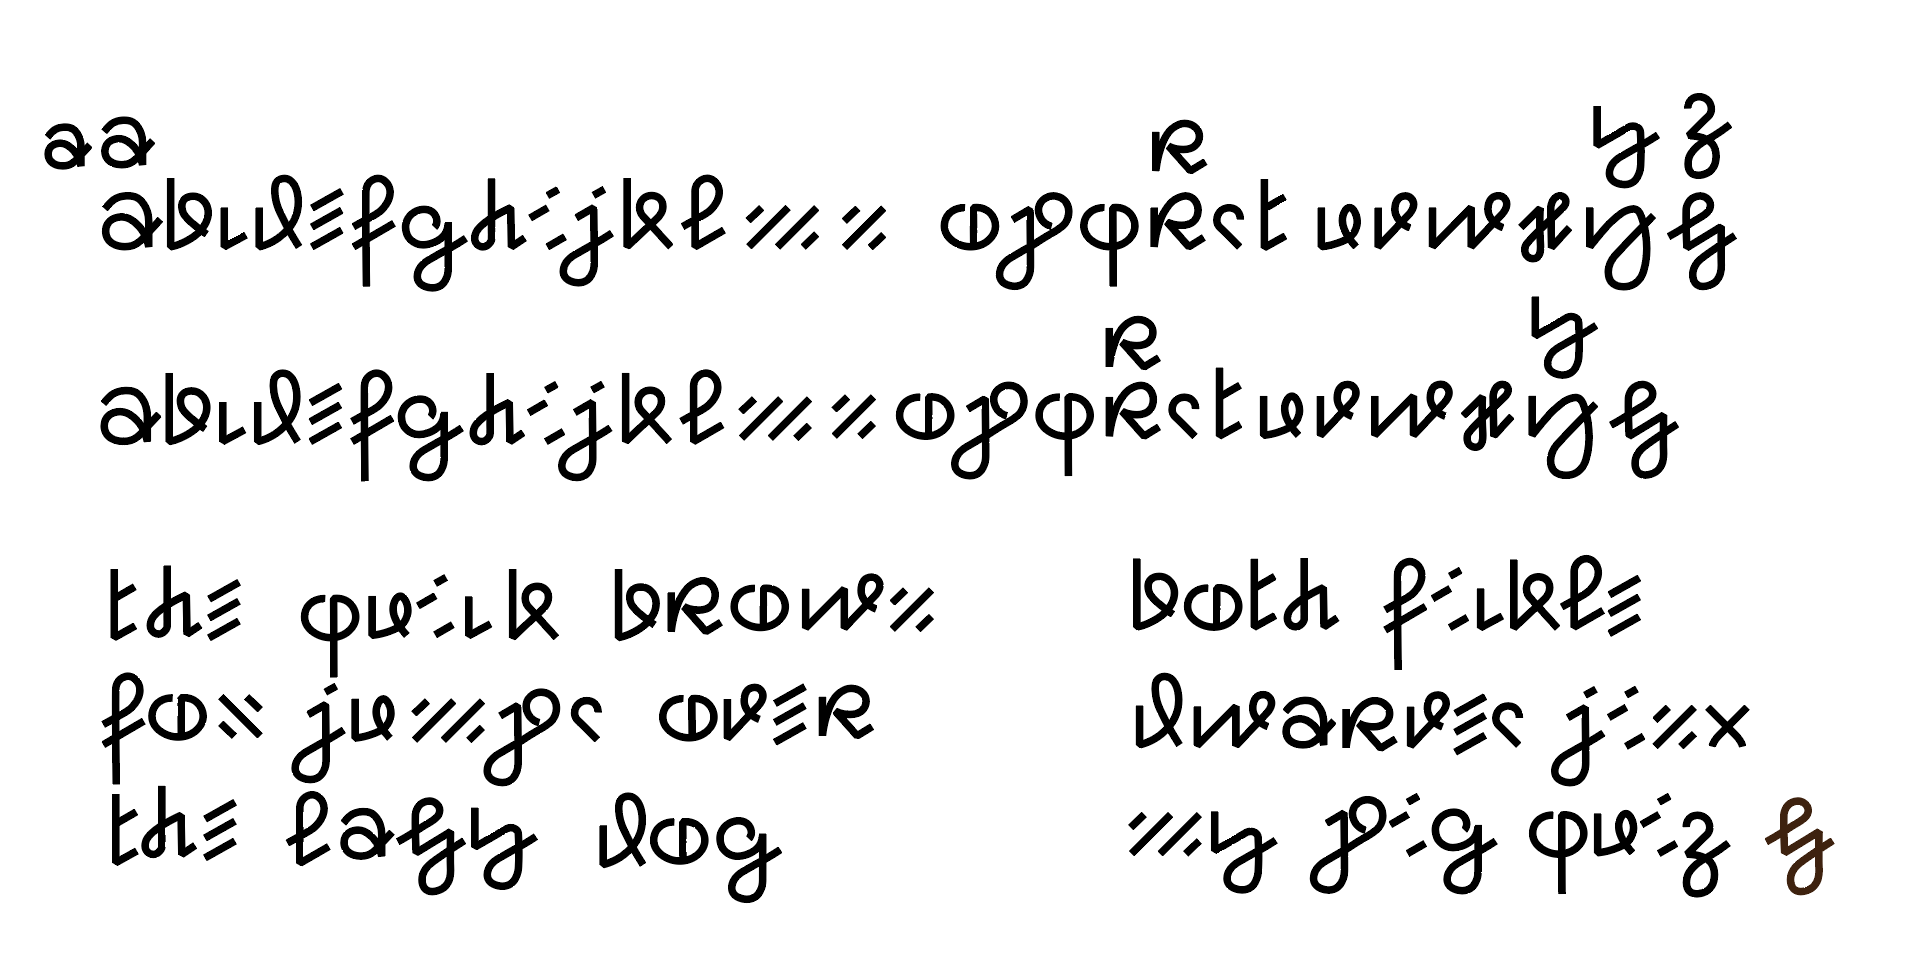 a a r y z
abcdefghijklmn opqrstuvwxyz
r y
abcdefghijklmnopqrstuvwxyz
the quick brown
fox jumps over
the lazy dog
both fickle
dwarves jinx
my pig quiz z